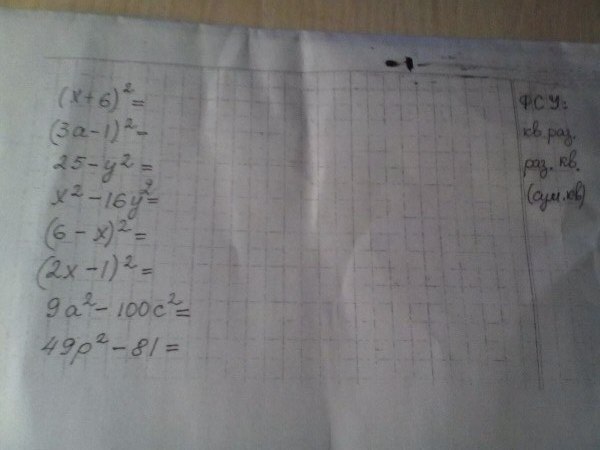 (x+6)²=
(3a-1)²-
25-y²=
x²-16y²=
(6-x)²=
(2x-1)²=
9a²-100c²=
49p²-81=
ФСУ:
кв. раз.
раз. кв.
(сум.кв)